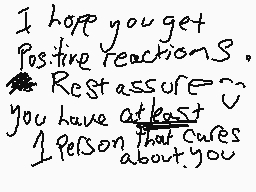 I hope you get
Positive reactions.
Rest assure
you have at least
1 Person that cares
about you